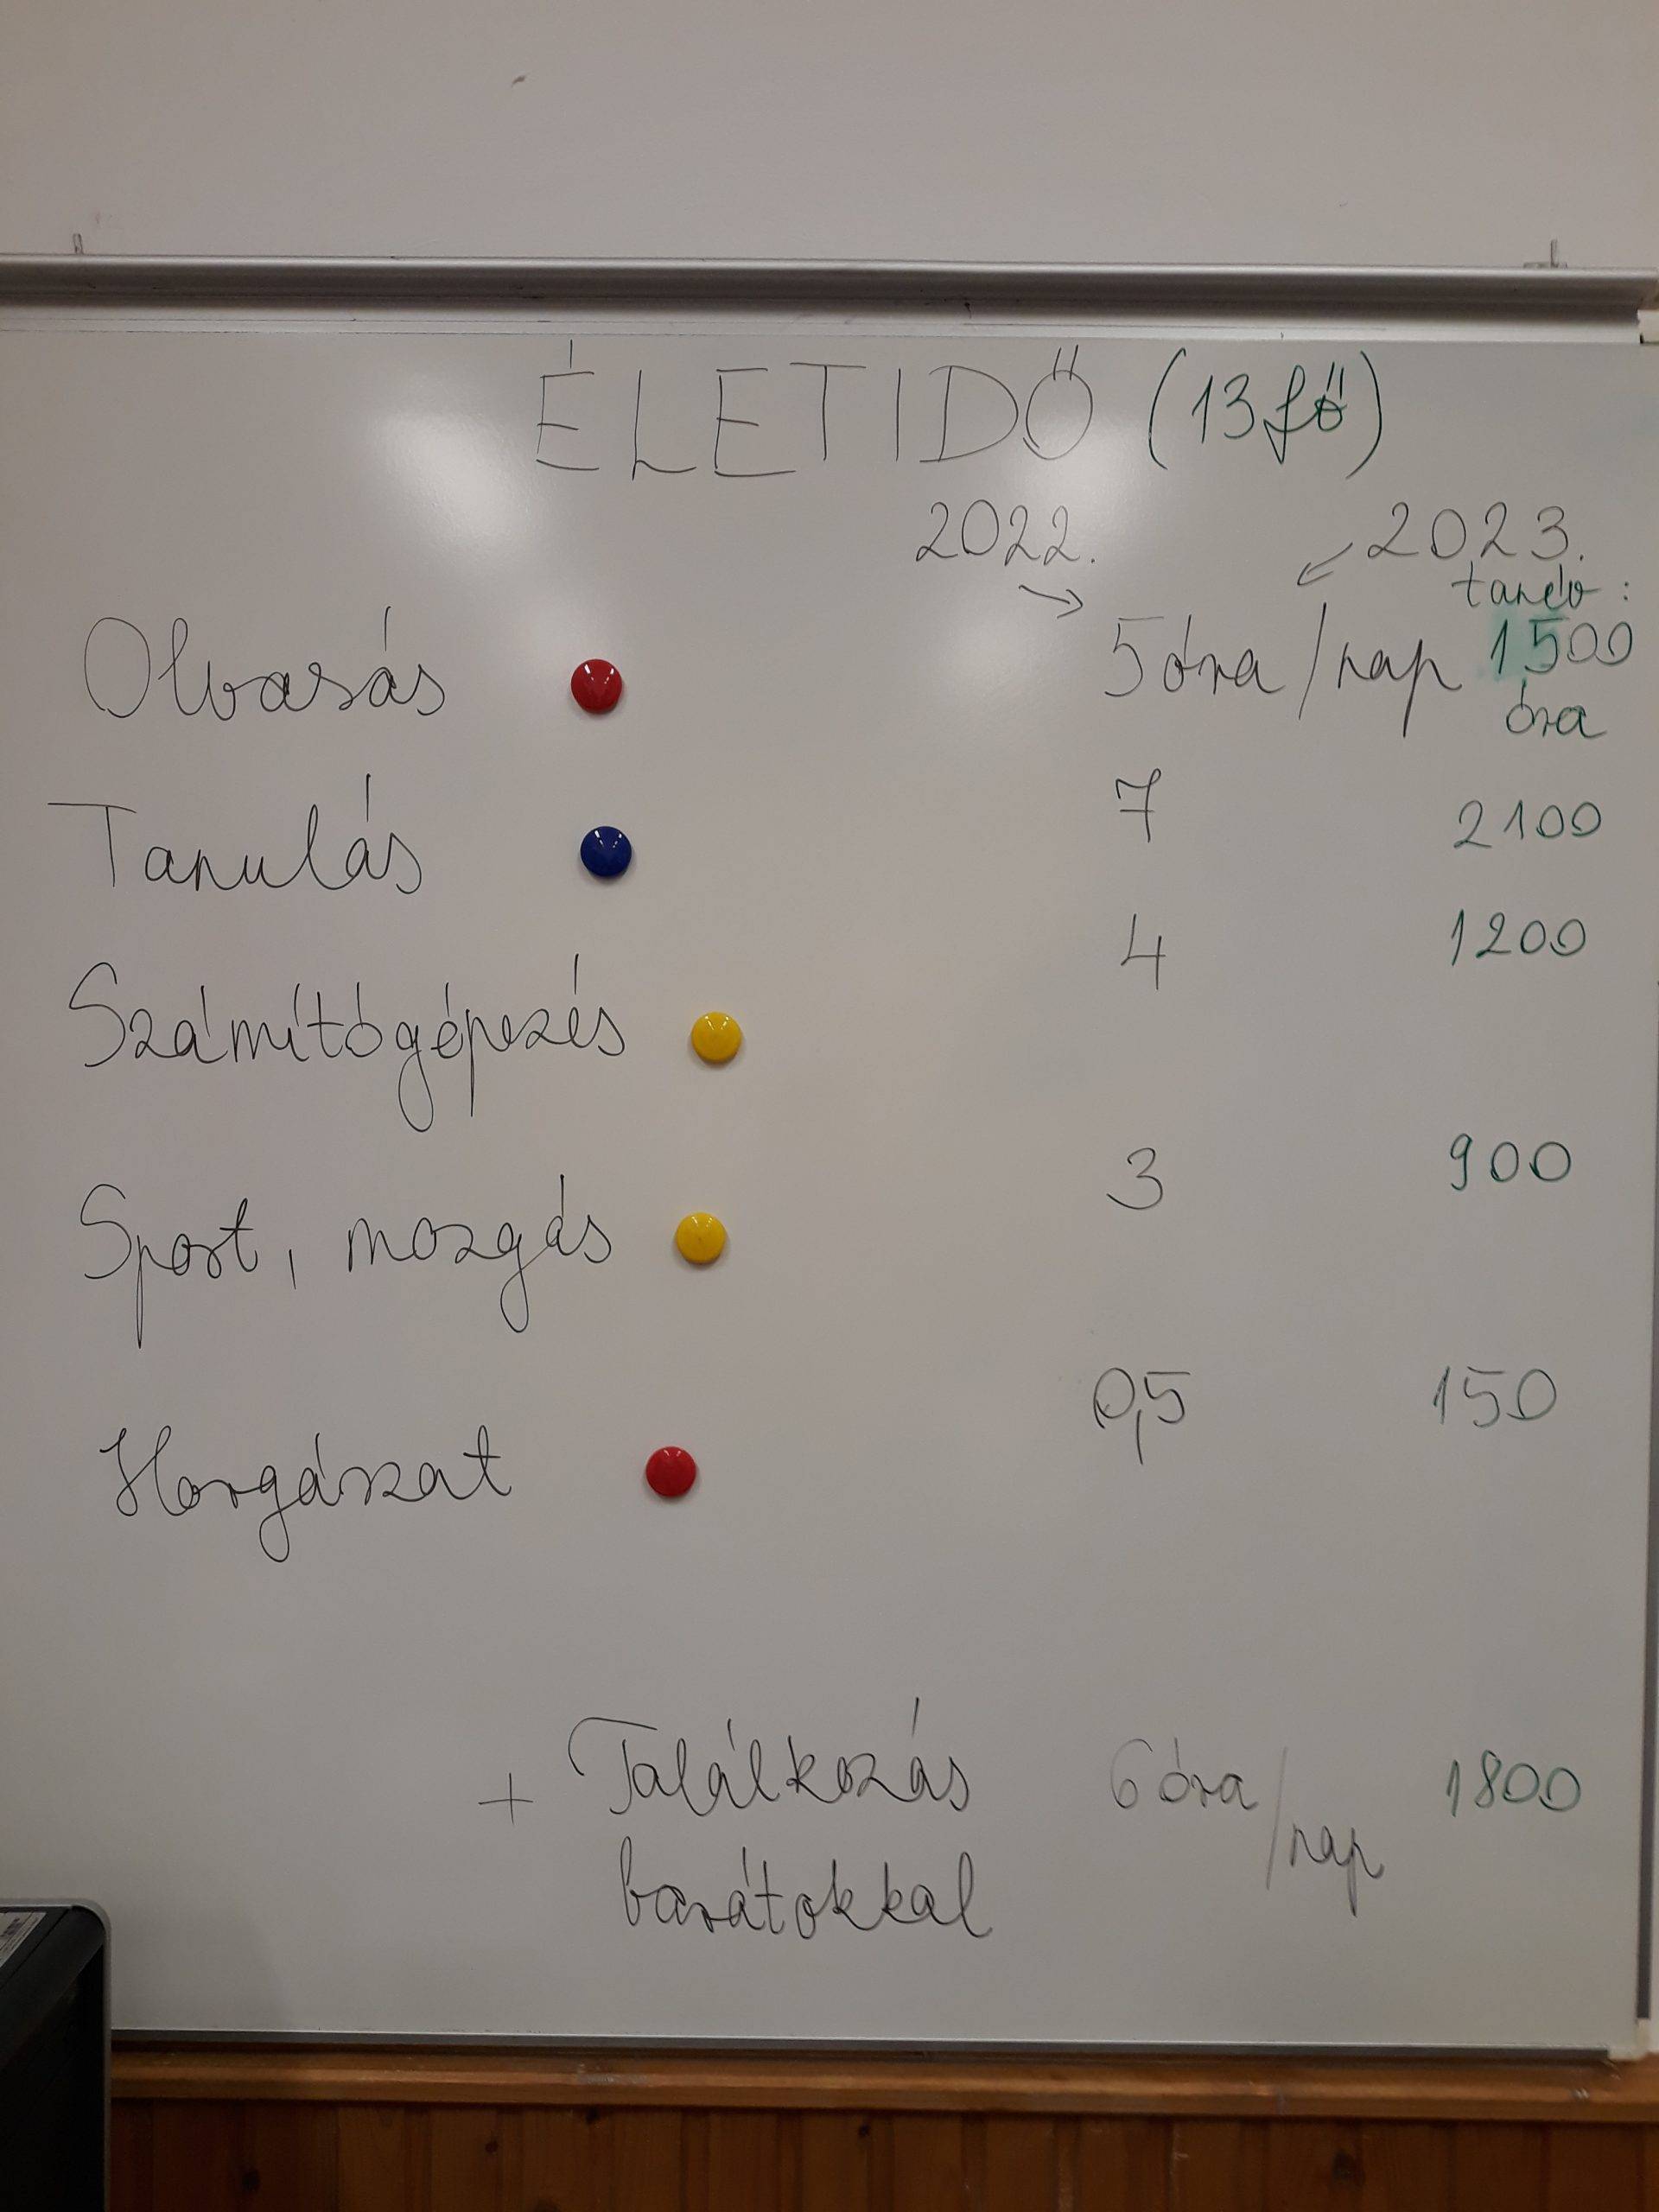 ÉLETIDŐ (13 fő)
2022. 2023.
→ ← tanév:
Olvasás 5 óra/nap 1500
óra
Tanulás 7 2100
Számítógépezés 4 1200
Sport, mozgás 3 900
Horgászat 0,5 150
+ Találkozás 6 óra/nap 1800
barátokkal